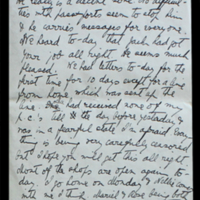 He really is a decent sort. No difficul-
ties with passports seem to stop him
& he carries messages for everyone.
We heard to-day that Jack had got
your job all right. He seems much
pleased. We had letters to-day for the
first time for 10 days except for one
from home which was sent up the
line. She had received none of my
p.c's till the day before yesterday &
was in a fearful state I'm afraid. Every
thing is being very carefully censored
but I hope you will get this all right
Most of the shops are open again to-
day. I go home on Monday & Nellie comes
with me I think. Muriel & Rene being both